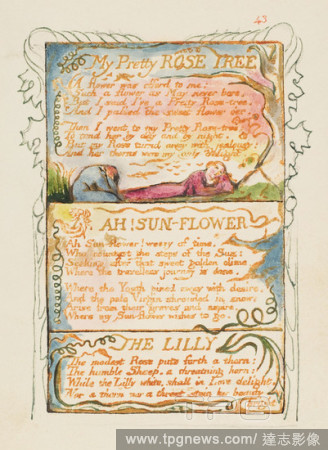 43
My Pretty ROSE TREE
A flower was offerd to me:
Such a flower as May never bore.
But I said I've a Pretty Rose-tree,
And I passed the sweet flower o'er.
Then I went to my Pretty Rose-tree:
To tend her by day and by night.
But my Rose turnd away with jealousy:
And her thorns were my only delight.
AH! SUN-FLOWER
Ah Sun-flower! weary of time,
Who countest the steps of the Sun:
Seeking after that sweet golden clime
Where the travellers journey is done.
Where the Youth pined away with desire,
And the pale Virgin shrouded in snow:
Arise from their graves and aspire,
Where my Sun-flower wishes to go.
THE LILLY
The modest Rose puts forth a thorn:
The humble Sheep, a threatning horn:
While the Lilly white, shall in Love delight,
Nor a thorn nor a threat stain her beauty
www.tpgnews.com / 達志影像